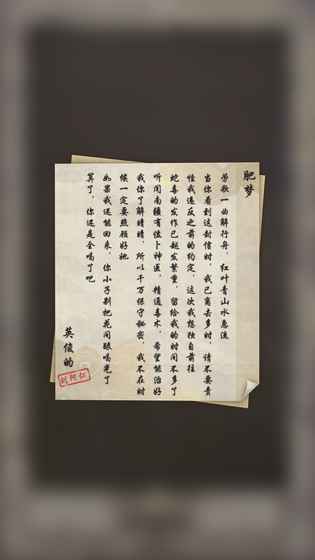 肥梦
劳歌一曲解行舟,红叶青山水急流
当你看到这封信时,我已离去多时,请不要责
怪我违反之前的约定,这次我想独自前往
蛇毒的发作已越发繁重,留给我的时间不多了
听闻南疆有位卜神医,精通毒术,希望能治好
我你了解晴晴,所以千万保守秘密,我不在时
候一定要照顾好她
如果我还能回来,你小子别把花间眠喝光了
算了,你还是全喝了吧
英俊的